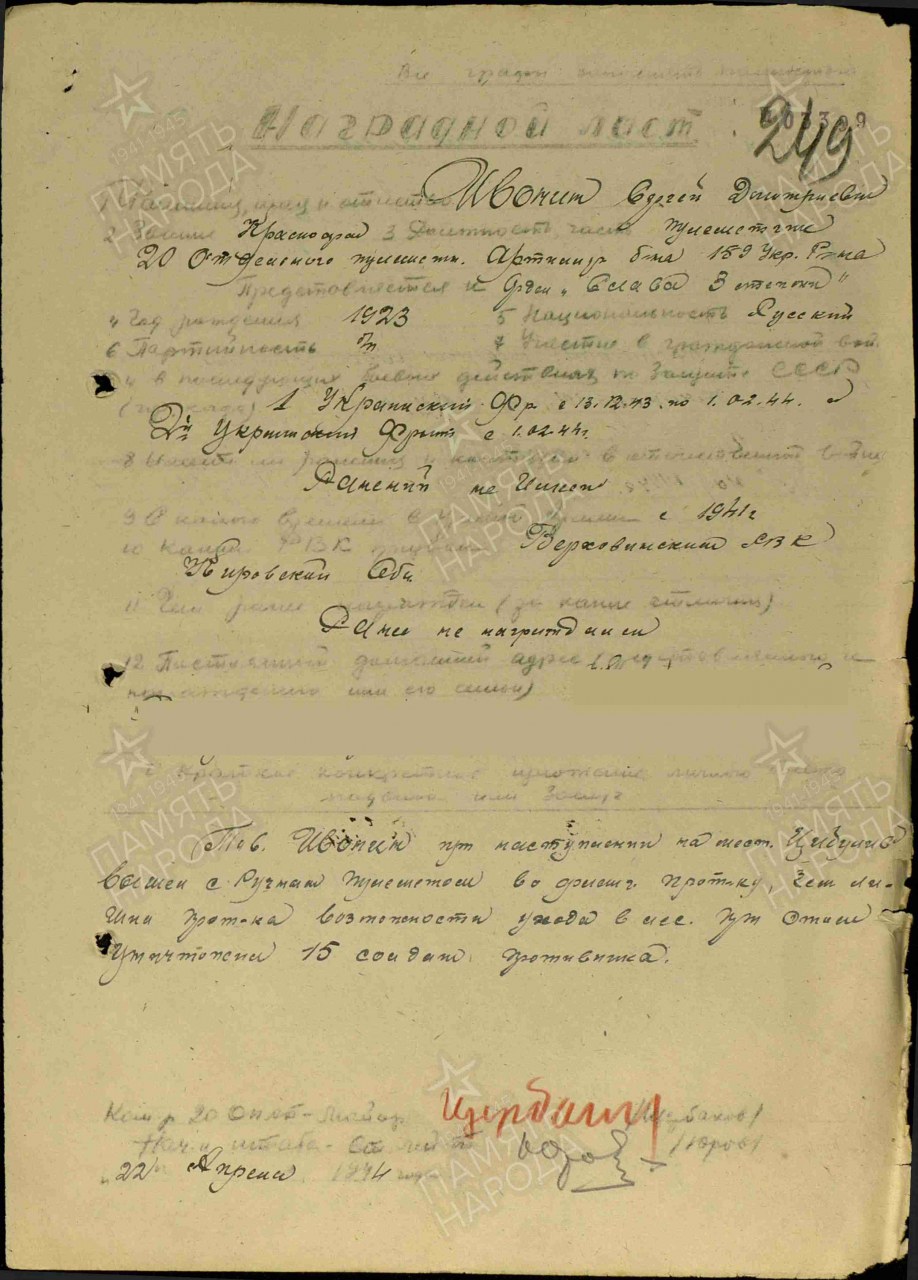 Все графы заполнять полностью
Наградной лист
249
1 Фамилия, имя и отчество Ивонин Сергей Дмитриевич
2 Звание Красноарм 3 Должность, часть Пулеметчик
20 Отдельного пулеметн. Арт б-на 159 Укр. Р-на
Представляется к Орден „Слава 3 степени"
4 Год рождения 1923 5 Национальность Русский
6 Партийность б/п 7 Участие в гражданской вой
и в последующих боевых действиях по защите СССР
1 Украинский Фр. с 13.12.43 по 1.02.44. и
2й Украинский Фронт с 1.02.44г.
8 Имеет ли ранения и контузии в отечественной войне
Ранений не имеет
9 С какого времени в Красной Армии с 1941г
10 Каким РВК призван Верховинским РВК
Кировский Обл
11 Чем ранее награжден (за какие отличия)
Ранее не награждался
12 Постоянный домашний адрес представляемого к
награждению или его семьи)
Краткое конкретное изложение личного
подвига или заслуг
Тов. Ивонин при наступлении на мест. Цибулев
вышел с Ручным пулеметом во фланг прот-ку, чем ли-
шил прот-ка возможности ухода в лес. При этом
уничтожил 15 солдат противника.
Ком-р 20 ОПАБ - Майор Щербаков /Щербаков/
Нач-к штаба - Ст лейт /Юров/
„22" Апреля 1944 года
ПАМЯТЬ НАРОДА
1941-1945